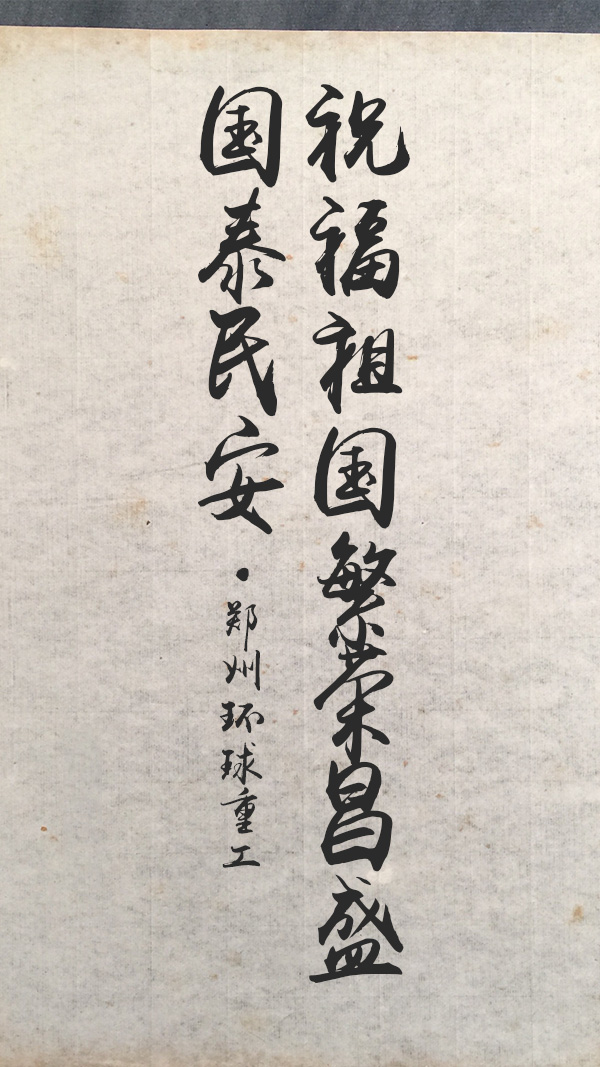 祝福祖国繁荣昌盛
国泰民安·郑州环球重工